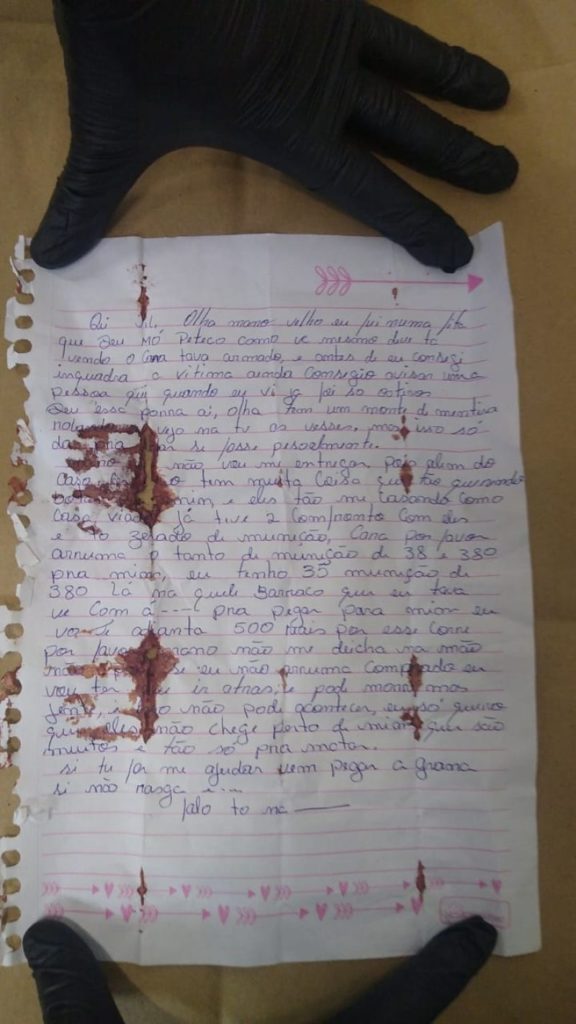 Olha mano velho eu fui numa fita
que Deu mó Peteco como vc mesmo deve ta
vendo o Cara tava armado, e antes de eu consegi
inquadra a vitima ainda Consegio avisar uma
pessoa qui quando eu vi ja foi so os tiros
Deu essa porra ai, olha tem um monte de mentira
vejo na tv os vesses, mas isso só
da pra si fosse pesoalmente.
não vou me entregar pois alem do
Caso tem muita Coisa que tão querendo
mim, e eles tão me Casando como
Casa viado já tive 2 Comfronto Com eles
e to zerado de munição, Cara por favor
arruma o tanto de munição de 38 e 380
pra mim, eu tenho 35 munição de
380 lá na quele Barraco que eu tava
ve Com a ---- pra pegar para mim eu
adianta 500 Reais por esse Corre
por favor mano não me deicha na mão
se eu não arruma Comprado eu
vou ter ir atras, e pode morre mas
jente, e não pode acontecer, eu só quero
que eles não chege perto de mim que são
muitos e tão só pra matar.
si tu for me ajudar vem pegar a grana
si não rasga
falo to na ———